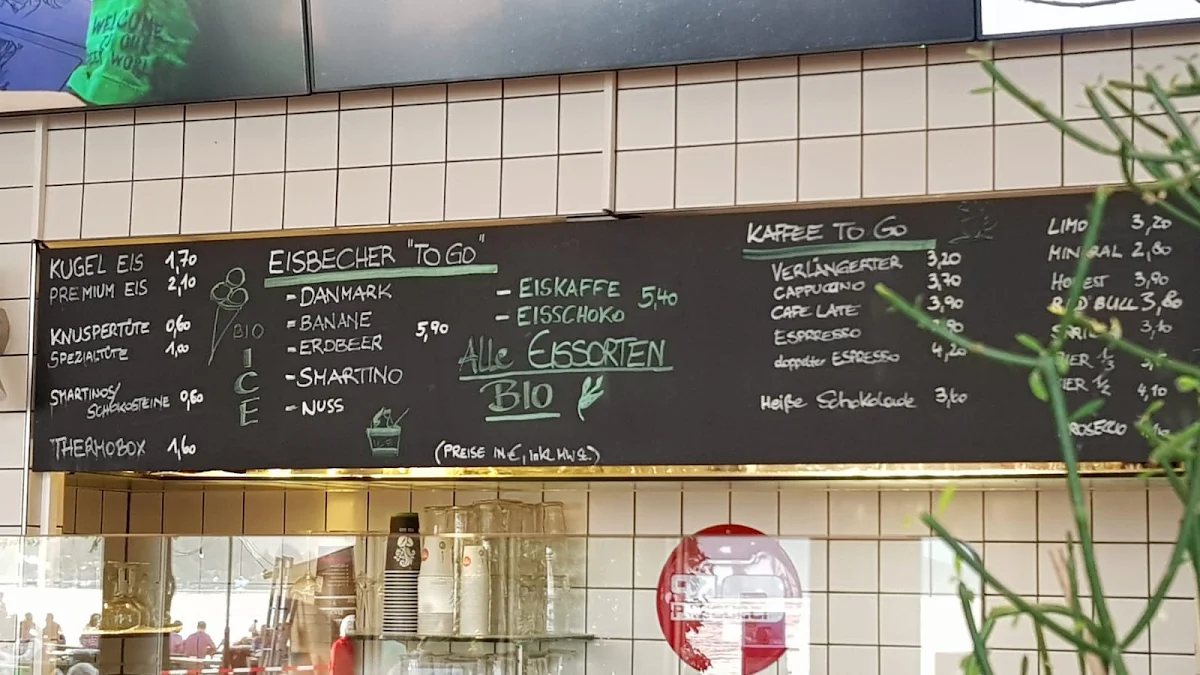 WELCOME
KUGEL EIS 1,70
PREMIUM EIS 2,10
KNUSPERTÜTE 0,60
SPEZIALTÜTE 1,00
SMARTINOS/
SCHOKOSTEINE 0,60
THERMOBOX 1,60
BIO
ICE
EISBECHER "TO GO"
- DANMARK
- BANANE
- ERDBEER 5,90
- SMARTINO
- NUSS
- EISKAFFE
- EISSCHOKO 5,40
Alle EISSORTEN
BIO
(PREISE IN €, inkl. MWSt.)
KAFFEE TO GO
VERLÄNGERTER 3,20
CAPPUCCINO 3,70
CAFE LATE 3,90
ESPRRESSO
doppelter ESPRESSO 4,20
Heiße Schokolade 3,60
LIMO 3,20
MINERAL 2,80
3,90
RED BULL 3,80
3,10
BIER 1/3
BIER 1/2 4,10